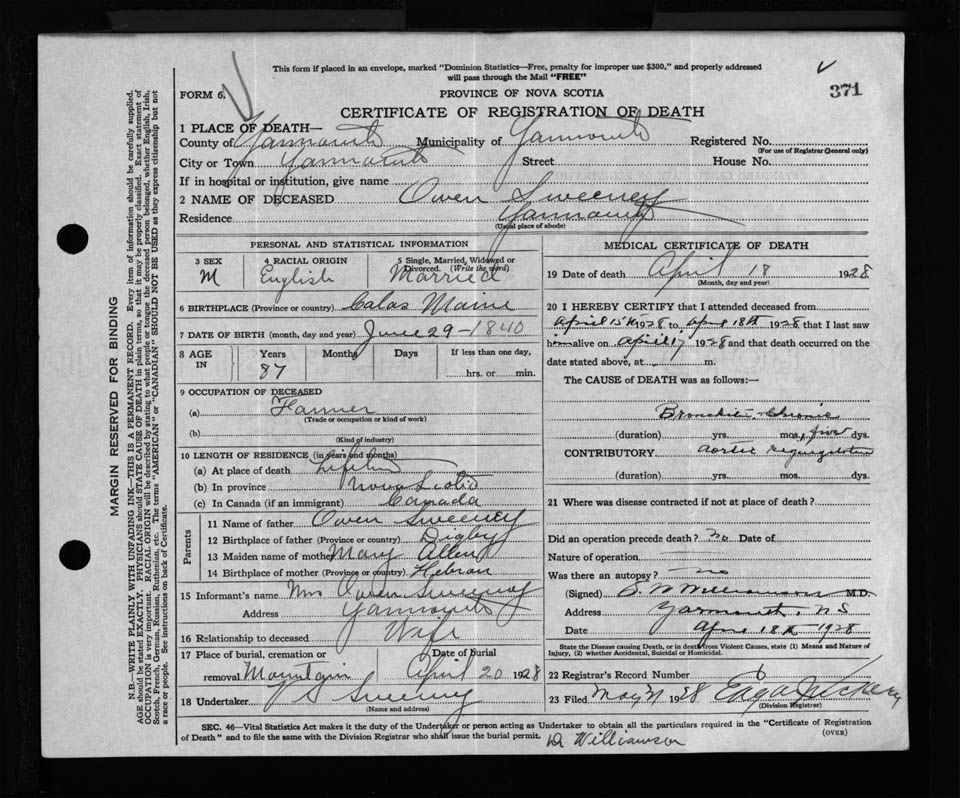 This form if placed in an envelope, marked "Dominion Statistics—Free, penalty for improper use $300," and properly addressed
will pass through the Mail "FREE"
371
FORM 6.
PROVINCE OF NOVA SCOTIA
CERTIFICATE OF REGISTRATION OF DEATH
1 PLACE OF DEATH—
County of Yarmouth Municipality of Yarmouth Registered No.
(For use of Registrar General only)
City or Town Yarmouth Street House No.
If in hospital or institution, give name
2 NAME OF DECEASED Owen Sweeney
Residence Yarmouth
(Usual place of abode)
PERSONAL AND STATISTICAL INFORMATION
3 SEX 4 RACIAL ORIGIN 5 Single, Married, Widowed or
Divorced. (Write the word)
M English Married
6 BIRTHPLACE (Province or country) Calas Maine
7 DATE OF BIRTH (month, day and year) June 29-1840
8 AGE IN Years Months Days If less than one day,
87 hrs. or min.
9 OCCUPATION OF DECEASED
(a) Farmer
(Trade or occupation or kind of work)
(b)
(Kind of industry)
10 LENGTH OF RESIDENCE (in years and months)
(a) At place of death
(b) In province Nova Scotia
(c) In Canada (if an immigrant) Canada
Parents
11 Name of father Owen Sweeney
12 Birthplace of father (Province or country) Digby
13 Maiden name of mother Mary Allen
14 Birthplace of mother (Province or country) Hebron
15 Informant's name Mrs Owen Sweeney
Address Yarmouth
16 Relationship to deceased Wife
17 Place of burial, cremation or Date of burial
removal Mountain April 20 1928
18 Undertaker V S Sweeny
(Name and address)
MEDICAL CERTIFICATE OF DEATH
19 Date of death April 18 1928
(Month, day and year)
20 I HEREBY CERTIFY that I attended deceased from
April 15th 1928 to April 18th 1928 that I last saw
him alive on April 17 1928 and that death occurred on the
date stated above, at m.
The CAUSE of DEATH was as follows:—
Bronchitis Chronic
(duration) yrs. mos. five dys.
CONTRIBUTORY aortic regurgitation
(duration) yrs. mos. dys.
21 Where was disease contracted if not at place of death?
Did an operation precede death? no Date of
Nature of operation
Was there an autopsy? no
(Signed) S. W Williamson M.D.
Address Yarmouth, N S
Date April 18th 1928
State the Disease causing Death, or in deaths from Violent Causes, state (1) Means and Nature of
Injury, (2) whether Accidental, Suicidal or Homicidal.
22 Registrar's Record Number 6
23 Filed May 1928
(Division Registrar)
SEC. 46—Vital Statistics Act makes it the duty of the Undertaker or person acting as Undertaker to obtain all the particulars required in the "Certificate of Registration
of Death" and to file the same with the Division Registrar who shall issue the burial permit.
(OVER)
Dr Williamson
MARGIN RESERVED FOR BINDING
N.B.—WRITE PLAINLY WITH UNFADING INK—THIS IS A PERMANENT RECORD. Every item of information should be carefully supplied.
AGE should be stated EXACTLY. PHYSICIANS should STATE CAUSE OF DEATH in plain terms, so that it may be properly classified. Exact statement of
OCCUPATION is very important. RACIAL ORIGIN will be described by stating to what people or tongue the deceased person belonged, whether English, Irish,
Scotch, French, German, Russian, Ruthenian, etc. The terms "AMERICAN" or "CANADIAN" SHOULD NOT BE USED as they express citizenship but not
a race or people. See instructions on back of Certificate.